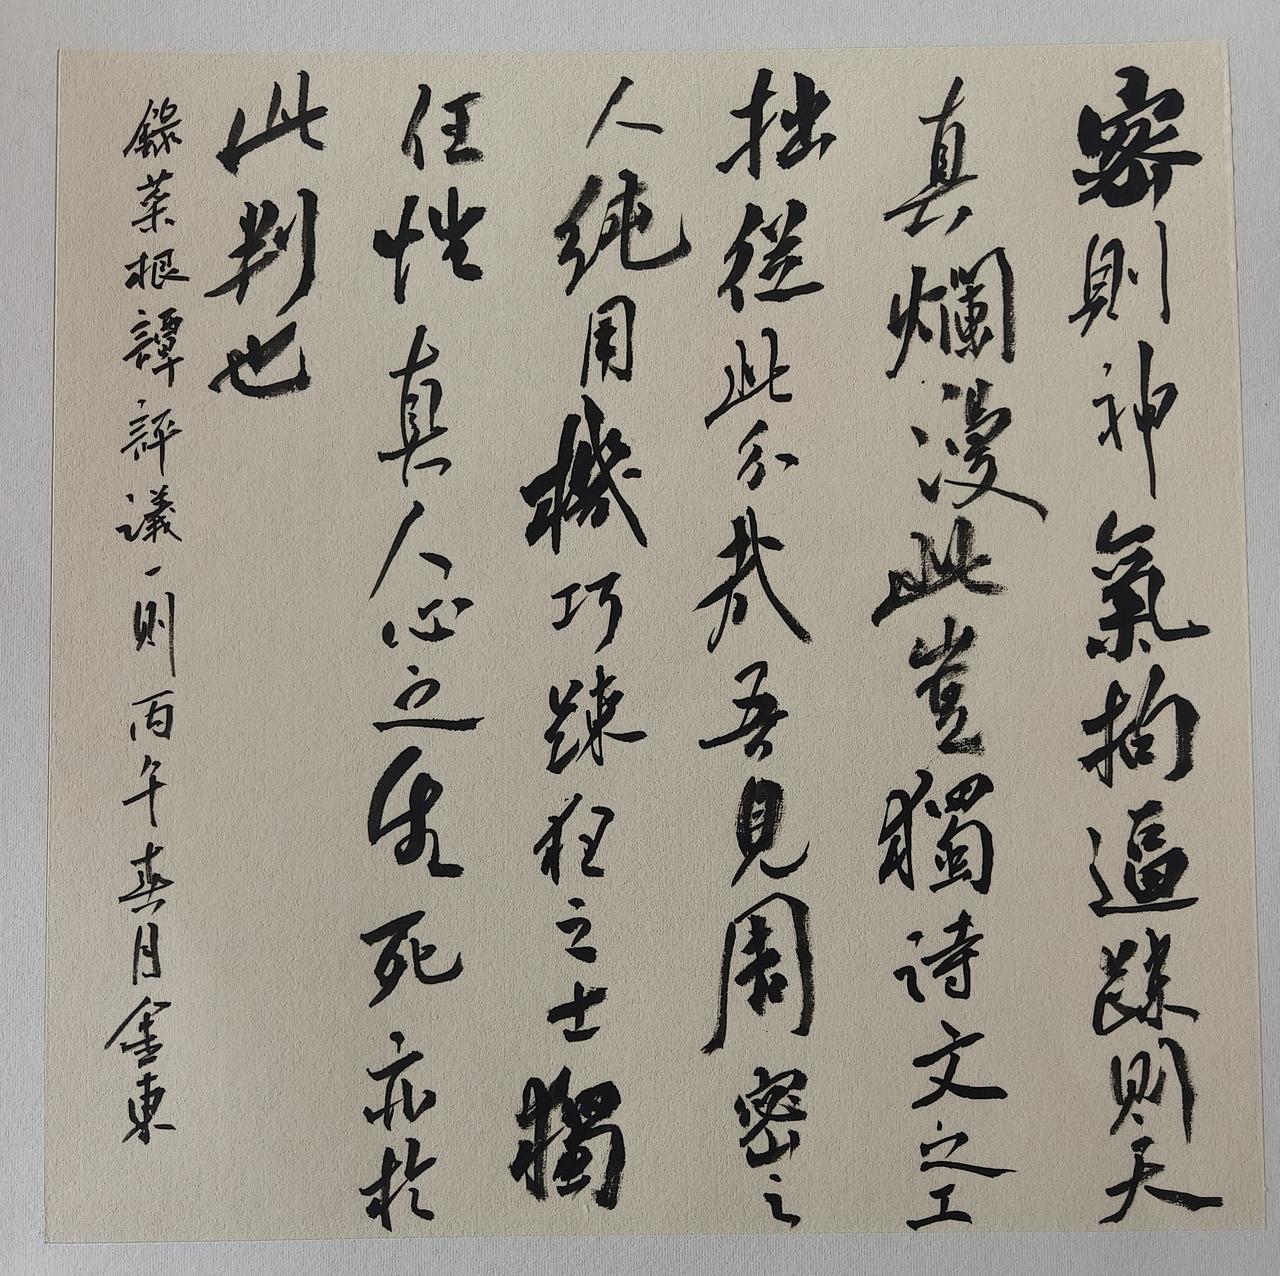 密則神氣拘逼踈則天
真爛漫此豈獨詩文之工
拙從此分哉吾見周密之
人純用機巧踈狂之士獨
任性真人心之生死亦於
此判也
錄菜根譚評議一則丙午春月金東